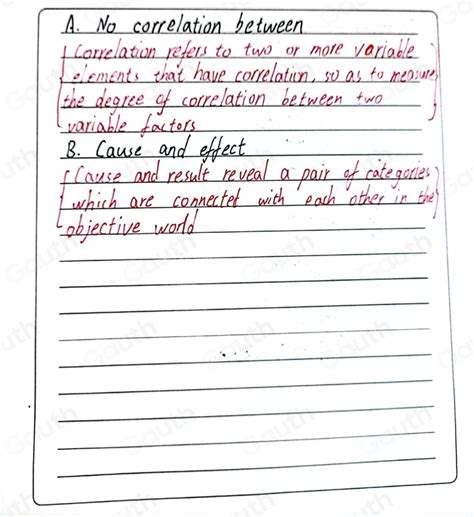 A. No correlation between
Correlation refers to two or more variable
elements that have correlation, so as to measure
the degree of correlation between two
variable factors
B. Cause and effect
Cause and result reveal a pair of categories
which are connectet with each other in the
objective world